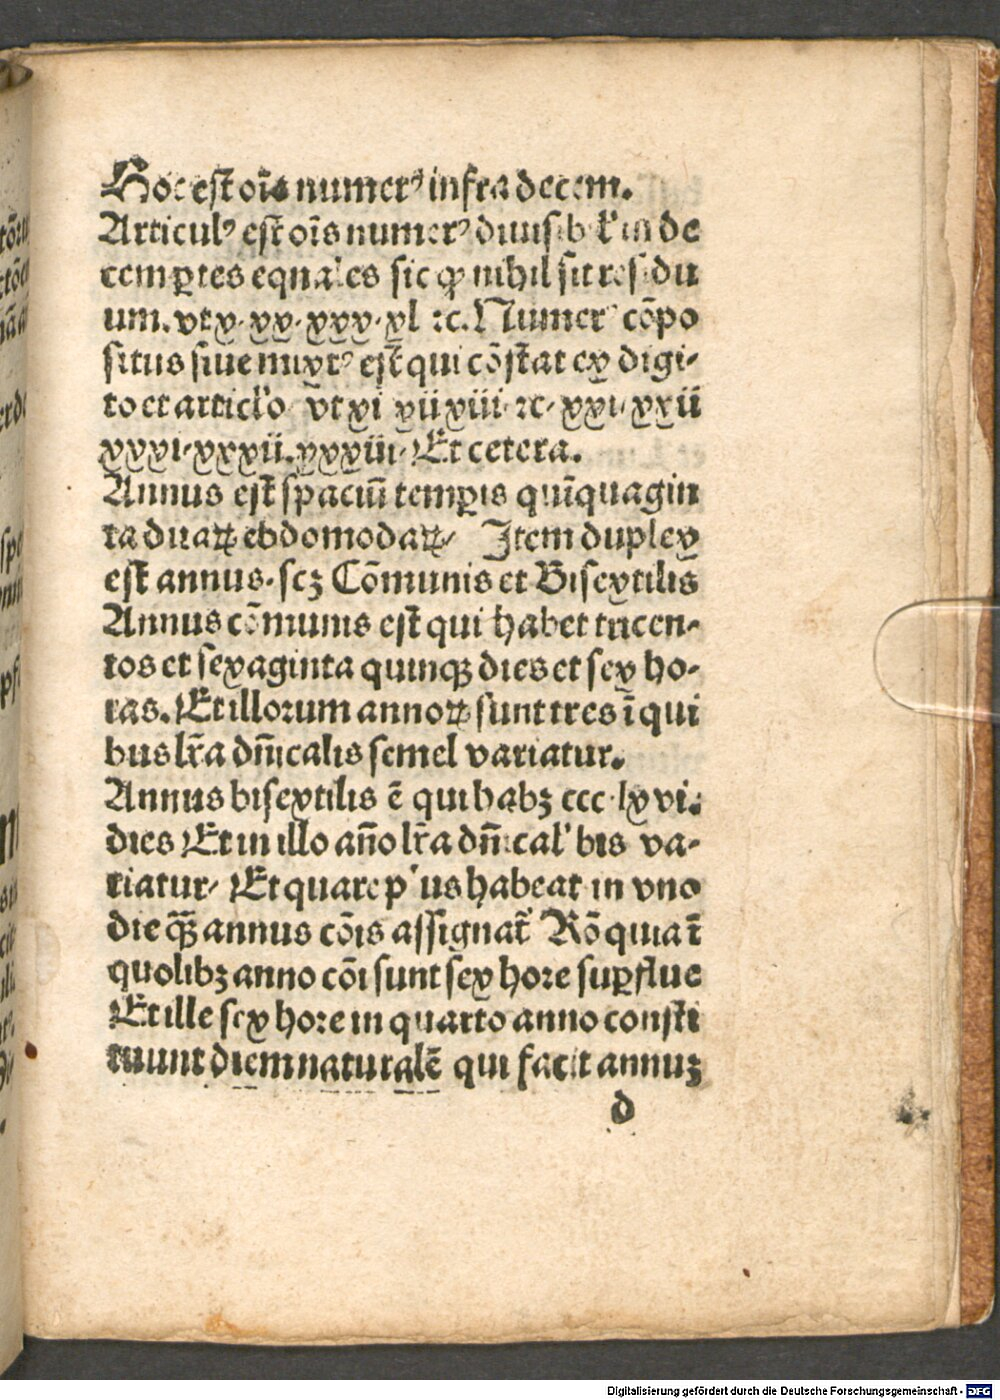 Hoc est oīs numerꝰ infra decem.
Articulꝰ est oīs numerꝰ diuisibl'is in de
cem ꝑtes equales sic ꝙ nihil sit residu
um. vt x. xx. xxx. xl ⁊c. Numerꝰ cōpo
situs siue mixtꝰ est qui cōstat ex digi-
to et articl'o vt xi xii xiii ⁊c. xxi. xxii
xxxi. xxxii. xxxiii. Et cetera.
Annus est spaciū temꝑis quīquagin
ta duaꝝ ebdomodaꝝ/ Item duplex
est annus. scꝫ Cōmunis et Bisextilis
Annus cōmunis est qui habet tricen-
tos et sexaginta quinqꝫ dies et sex ho-
ras. Et illorum annoꝝ sunt tres ī qui
bus lr̄a dn̄icalis semel variatur.
Annus bisextilis ē qui habꝫ ccc lxvi.
dies Et in illo an̄o lr̄a dn̄ical' bis va-
riatur/ Et quare p'us habeat in vno
die qꝫ̄ annus cōis assignat̄ Rō quia ī
quolibꝫ anno cōi sunt sex hore suꝑflue
Et ille sex hore in quarto anno consti
tuunt diem naturalē qui facit annuꝫ
d
Digitalisierung gefördert durch die Deutsche Forschungsgemeinschaft - DFG